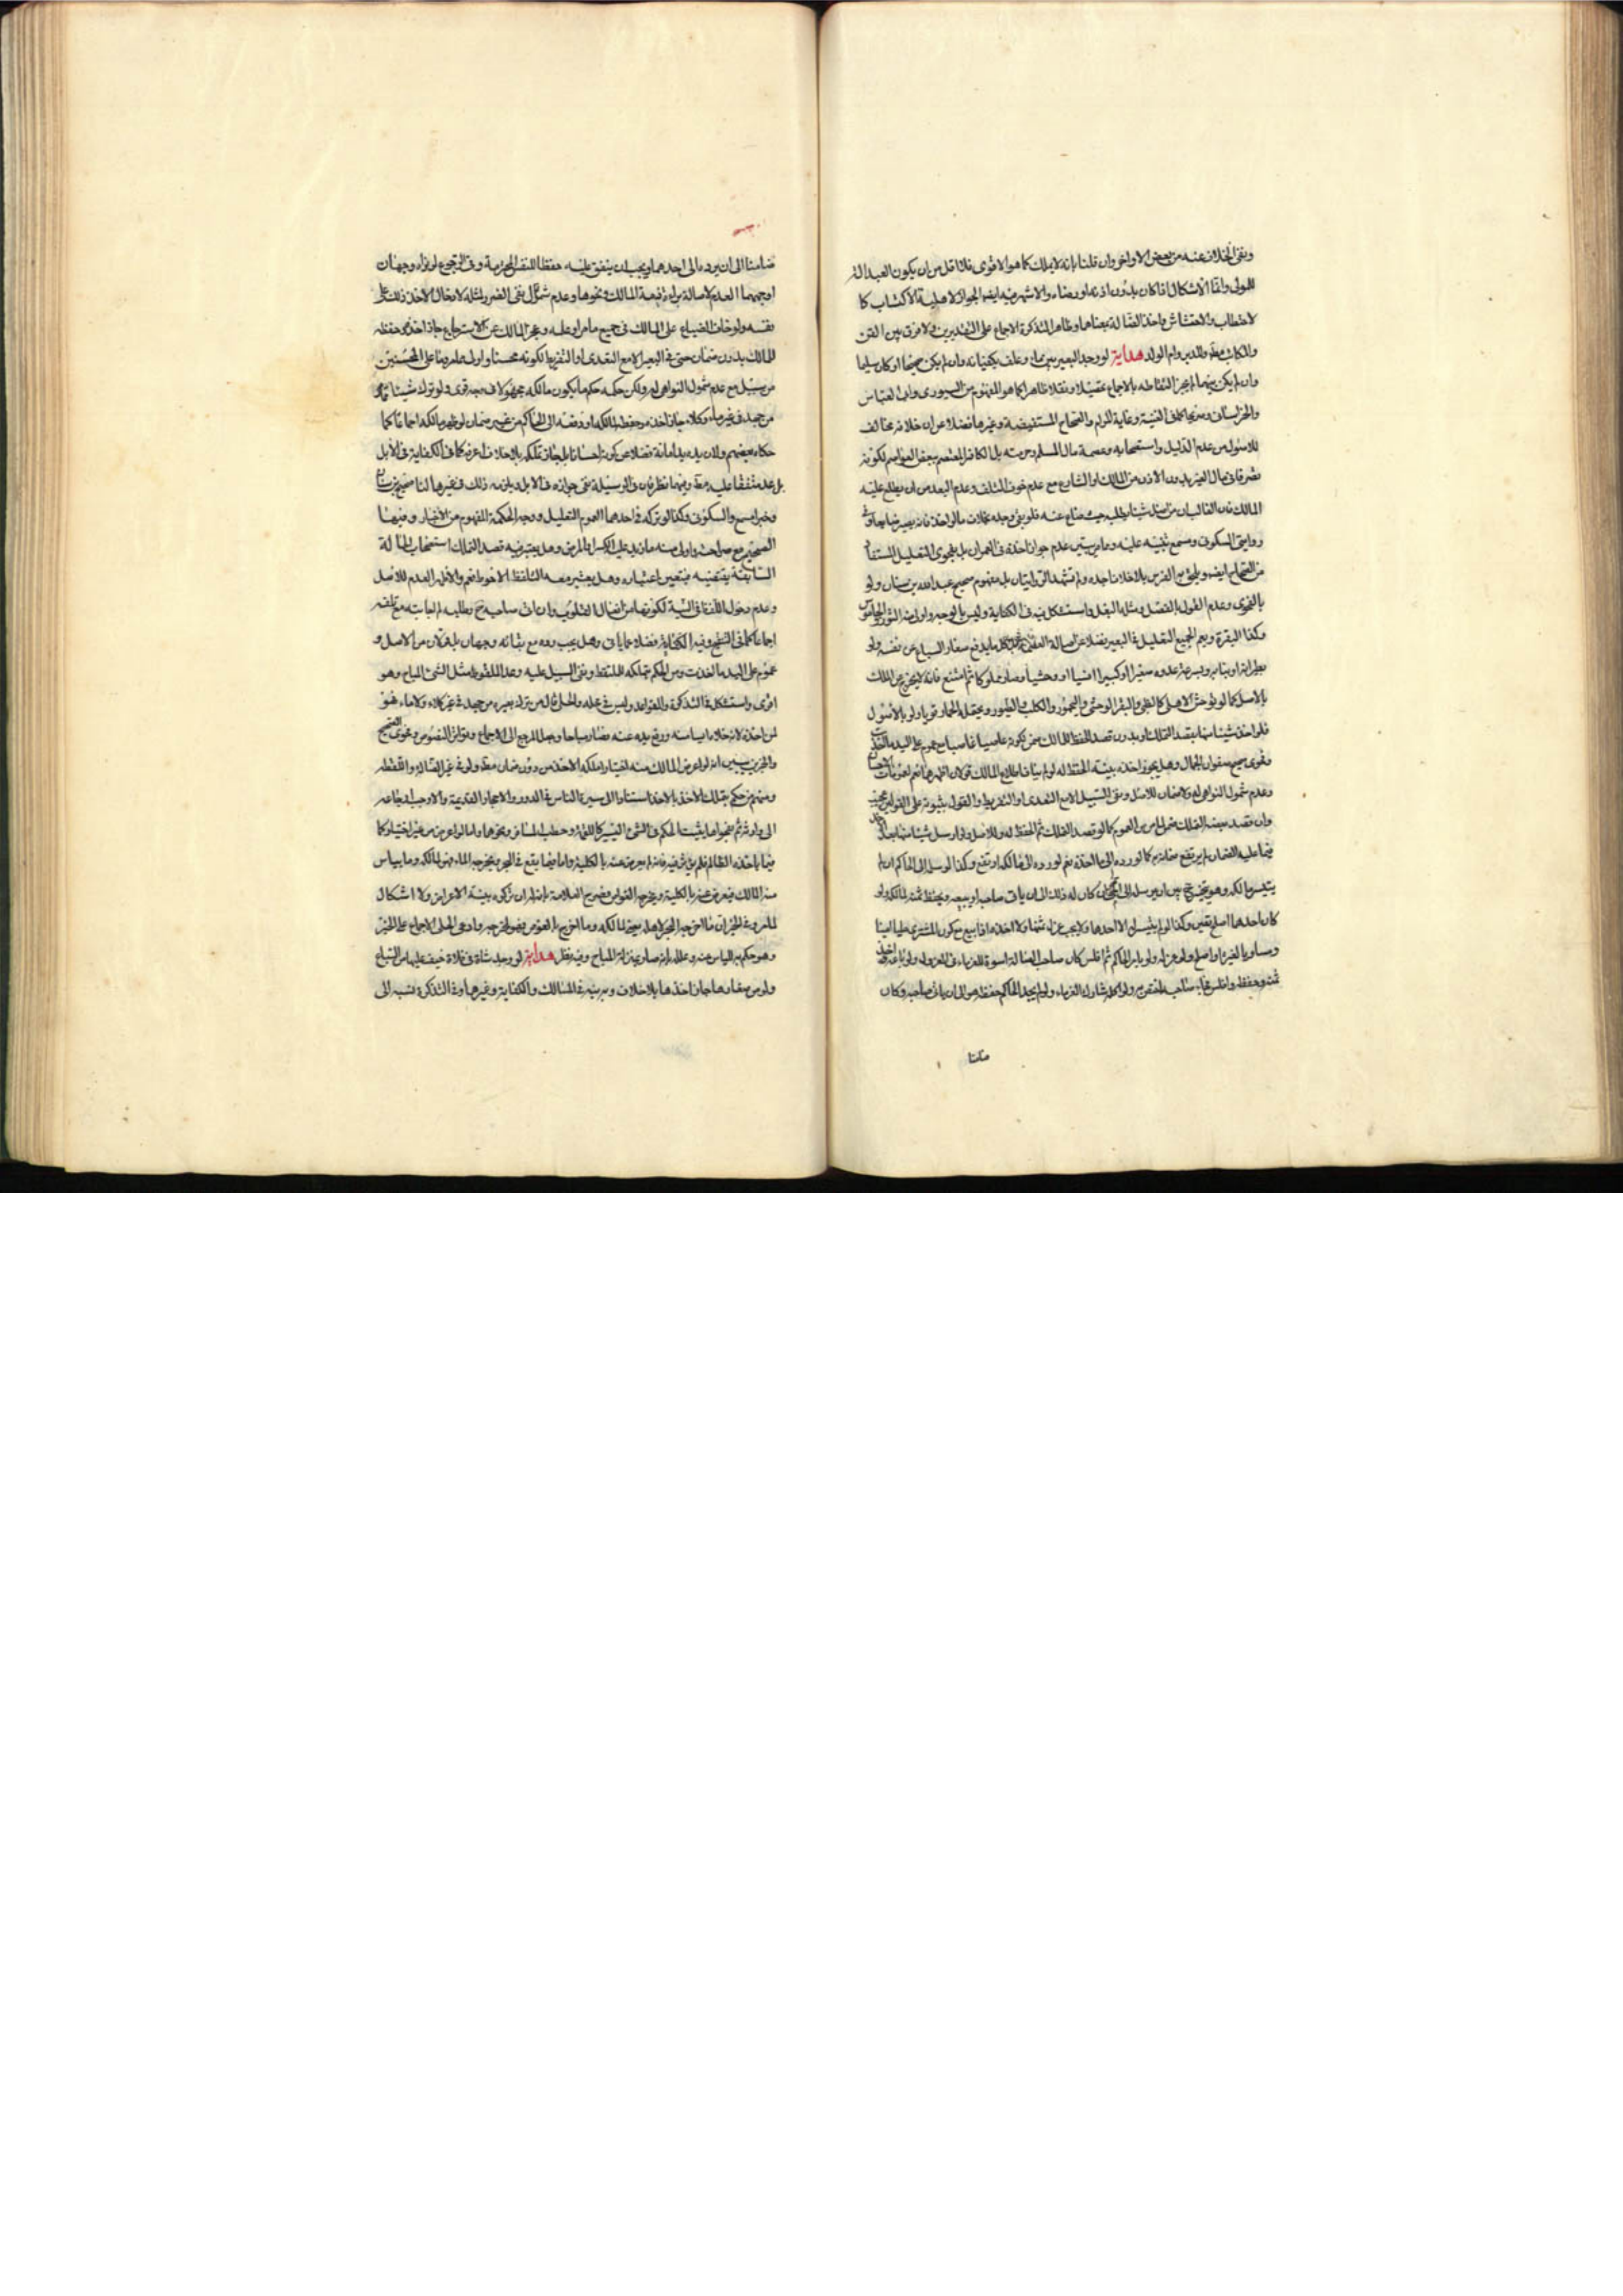 ونفى الخلاف عنه من بعض الاواخر وان قلنا بانه لا يملك كما هو الاقوى فلا اقل من ان يكون العبد الة
للمولى وانما الاشكال اذا كان بدون اذنه او رضاه والاشهر فيه ايضا الجواز لاهلية الاكتساب كا
لاحتطاب والاحتشاش واخذ الضالة بمعناها وظاهر التذكرة الاجماع على التقديرين ولا فرق بين القن
والمكاتب مطلقا والمدبر وام الولد هداية لو وجد البعير بين ماء وعلف يكفيانه وان لم يكن صحيحا او كان سليما
وان لم يكن بينهما لم يجز التقاطه بالاجماع تحصيلا ونقلا ظاهرا كما هو المفهوم من السيورى وابى العباس
وصريحا كما فى الغنية وغاية المرام والصحاح المستفيضة وغيرها فضلا عن ان خلافه مخالف
للاصول من عدم الدليل واستصحابه وعصمة مال المسلم وحرمته بل الكافر المعتصم ببعض العواصم لكونه
تصرفا فى مال الغير بدون الاذن من المالك او الشارع مع عدم خوف التلف وعدم البعد من ان يطلع عليه
المالك فان الغالب ان من اضل شيئا يطلبه حيث ضاع عنه
وروايتى السكونى ومسمع تنبيه عليه عدم جواز اخذه فى العمران بل بفحوى التعليل المستفاد
من الصحاح ايضا ويلحق به الفرس بل مفهوم صحيح عبدالله بن سنان ولو
بالفحوى وعدم القول بالفصل ومثلها البغل واستشكل فيه فى الكفاية وليس بالوجه واولى منه الثور والجاموس
وكذا البقرة ويعم الجميع التعليل فى البعير فضلا عن اصالة كل ما يدفع صغار السباع عن نفسه ولو
بطيرانه او بنابه وبسرعة عدوه صغيرا او كبيرا انسيا او وحشيا وصار مملوكا ثم امتنع فانه لا يخرج عن الملك
بالاصل كما لو توحش الاهلى كالظبى والبقر الوحشى واليحمور والكلب والطيور ويحتمل الحمار قويا ولو بالاصول
فلو اخذ شيئا منها بقصد التملك او بدون قصد الحفظ للمالك ضمن لكونه عاصيا غاصبا مع عموم على اليد
وفحوى صحيح صفوان الجمال وهل يجوز اخذه بنية الحفظ له قولان اظهرهما نعم
وعدم شمول النواهى له ولا ضمان للاصل ونفى السبيل الا مع التعدى او التفريط والقول بثبوته على القولين
وان قصد بنية التملك ضمن لما مر من العموم كما لو قصد التملك ثم الحفظ له وللاصل ولو ارسل شيئا منها بعد
فيما عليه الضمان لم يرتفع ضمانه كما لو رده الى ما اخذه نعم لو رده الى مالكه ارتفع وكذا لو سلمه الى الحاكم ان لم
يتيسر مالكه وهو يتخير بين ان يرسله الى الحمى ان كان له ذلك الى ان ياتى صاحبه او يبيعه ويحفظ ثمنه لمالكه ولو
كان احدهما اصلح تعين وكذا لو لم يتيسر له الا احدهما ولا يجب عزل ثمنها
ومساويا لغيره او اصلح ولو عزله ولو بامر الحاكم ثم افلس كان صاحب الضالة اسوة للغرماء
ثمنه وحفظه ولو لم يجد الحاكم حفظه هو الى ان ياتى صاحبه وكان
ضامنا
ضامنا الى ان يرده الى احدهما ويجب ان ينفق عليه حفظا للنفس المحترمة وفى الرجوع لو نواه وجهان
اوجههما العدم لاصالة براءة ذمة المالك ونحوها وعدم شمول نفى الضرر لمثله لادخال الاخذ ذلك على
نفسه ولو خاف الضياع على المالك فى جميع ما مر او علمه وعجز المالك عن الاسترجاع جاز اخذه وحفظه
للمالك بدون ضمان حتى فى البعير الا مع التعدى او التفريط لكونه محسنا وما على المحسنين
من سبيل مع عدم شمول النواهى له ولكن حكمه حكم ما يكون مالكه مجهولا فى وجه قوى ولو ترك شيئا
من جهد فى غير ماء وكلاء جاز اخذه وحفظه لمالكه او دفعه الى الحاكم من غير ضمان لو ظهر مالكه اجماعا كما
حكاه بعضهم ولان يده يد امانة فضلا عن كونه احسانا بل جاز تملكه بلا خلاف اعرفه كما فى الكفاية فى الابل
بل عد متفقا عليه مطلقا وفيهما نظر فان فى الوسيلة نفى جوازه فى الابل ويلزمه ذلك فى غيرها لنا صحيح بن سنان
وخبرا مسمع والسكونى وكذا لو تركه فى احدهما لعموم التعليل ووجه الحكمة المفهوم من الاخبار وفيها
الصحيح مع صراحته واولى منه ما زيد عليه الكسر او المرض وهل يعتبر فيه قصد التملك استصحاب الحالة
السابقة يقتضيه فيتعين اعتباره وهل يعتبر معه التلفظ الاحوط نعم والاظهر العدم للاصل
وعدم دخول الالفاظ فى النية لكونها من افعال القلوب وان اتى صاحبه حى وطلبه لم يجب مع تلفه
اجماعا كما فى التنقيح وفيه الكفاية فضلا عما ياتى وهل يجب رده مع بقائه وجهان بل قولان من الاصل و
عموم على اليد ما اخذت ومن الحكم بتملكه للملتقط ونفى السبيل عليه وعد الملقوط مثل الشئ المباح وهو
اقوى واستشكل فى التذكرة والقواعد وليس فى محله والحلى قال من ترك بعيره من جهد فى غير كلاء ولا ماء فهو
لمن اخذه لانه خلاه آيسا منه ورفع يده عنه فصار مباحا وجعل المرجع الى الاجماع وتواتر النصوص وفحوى الصحيح
والخبرين يبين انه لو اعرض المالك منه اختيارا ملكه الاخذ من دون ضمان مطلقا ولو فى غير الضالة واللقطة
ومنهم من حكم بتملك الاخذ بالاخذ استنادا الى سيرة الناس فى الدور والاحجار القديمة والاوجه ارجاعه
الى وارثه ثم بنحوها يثبت الحكم فى الشئ اليسير كاللقمة وحطب المسافر ونحوها واما لو اعرض من غير اختياره كما
فيما ياخذه الظالم فانه لم يعرض عنه بالكلية واما فيما يقع فى البحر ويخرجه الماء فهو لمالكه وما يياس
منه المالك فيعرض عنه بالكلية ويخرجه الغواص ولا اشكال
للمروى فى الخبر ان ما اخرجه البحر لاهله يعنى لمالكه وما اخرج بالغوص فهو لمخرجه وادعى الحلى الاجماع على الخبر
وهو حكم به لليأس عنه وعلله بانه صار بمنزلة المباح وفيه نظر هداية لو وجد شاة فى فلاة خيف عليها من السباع
ولو من صغارها جاز اخذها بلا خلاف وبه نبه فى المسالك والكفاية وغيرها وفى التذكرة نسبه الى